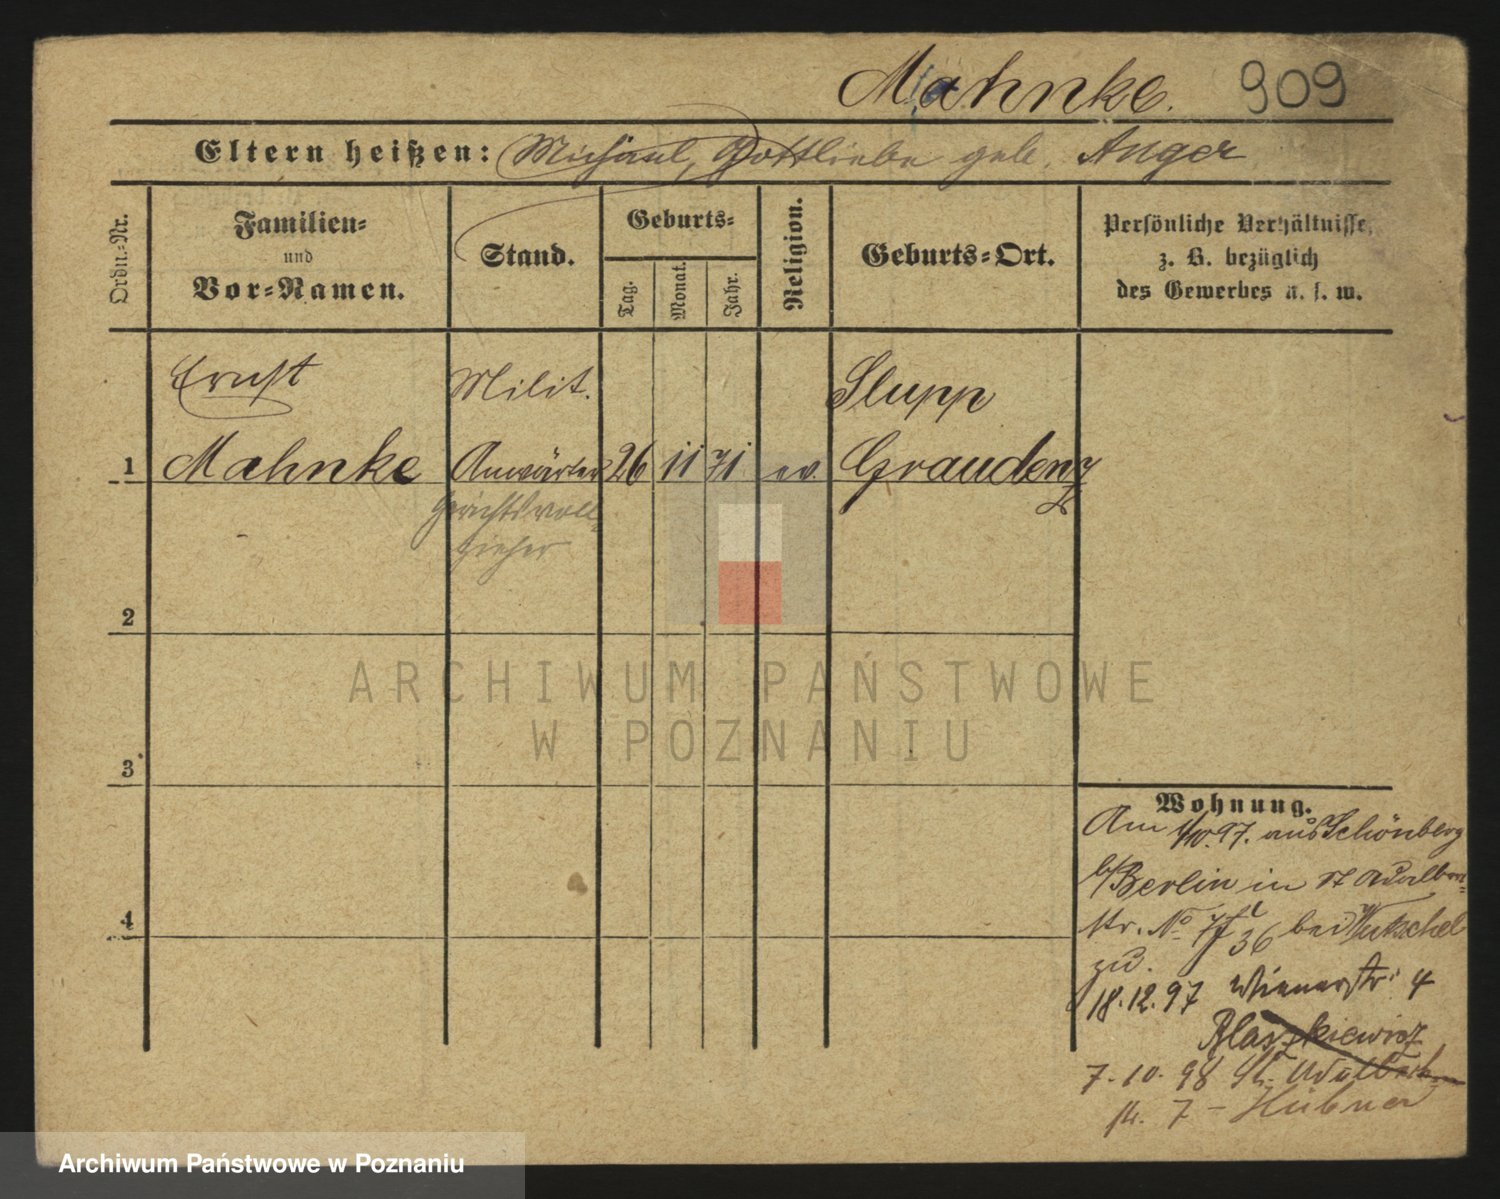 Mahnke. 909
Eltern heißen: Michael, Gottliebe geb. Anger
Ordn.-Nr.
Familien-
und
Vor-Namen.
Stand.
Geburts-
Tag.
Monat.
Jahr.
Religion.
Geburts-Ort.
Persönliche Verhältnisse,
z. B. bezüglich
des Gewerbes u. s. w.
Ernst Milit. Slupp
1 Mahnke Anwärter 26 11 71 ev. Graudenz
Gerichtsvoll-
zieher
2
3
4
Wohnung.
Am 1/10.97. aus Schönberg
b/Berlin in St Adalbert-
str. No 7 bei
zu.
18.12.97 Wienerstr. 4
Blaszkiewicz
7.10.98 St. Adalbert-
str. 7 - Hübner
ARCHIWUM PAŃSTWOWE
W POZNANIU
Archiwum Państwowe w Poznaniu